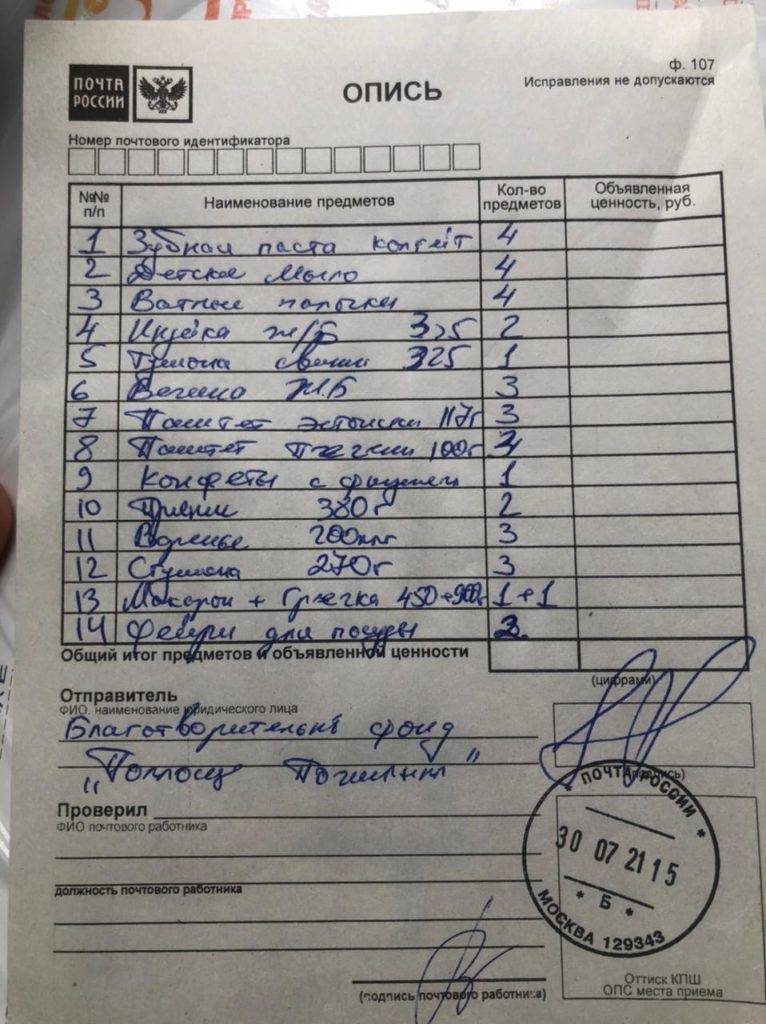 ПОЧТА РОССИИ
ф. 107
Исправления не допускаются
ОПИСЬ
Номер почтового идентификатора
№№ п/п Наименование предметов Кол-во предметов Объявленная ценность, руб.
1 Зубная паста колгейт 4
2 Детское мыло 4
3 Ватные палочки 4
4 Индейка ж/б 325 2
5 325 1
6 Ж.Б 3
7 Паштет эстонски 117г 3
8 Паштет 100г
9 Конфеты с 1
10 380г 2
11 Варенье 200 3
12 270г 3
13 Макарон + Гречка 450+900г 1+1
14 Фейри для посуды
Общий итог предметов и объявленной ценности
(цифрами)
Отправитель
ФИО. наименование юридического лица
Благотворительный фонд
(подпись)
Проверил
ФИО почтового работника
должность почтового работника
(подпись почтового работника)
ПОЧТА РОССИИ
30 07 21 15
* Б *
МОСКВА 129343
Оттиск КПШ
ОПС места приема